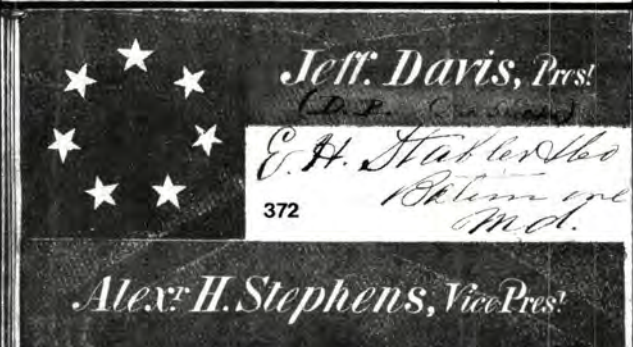 Jeff. Davis, Pres!
(D.P.
E. H. Stabler & Co
Baltimore
372
Md.
Alexr H. Stephens, Vice Pres!